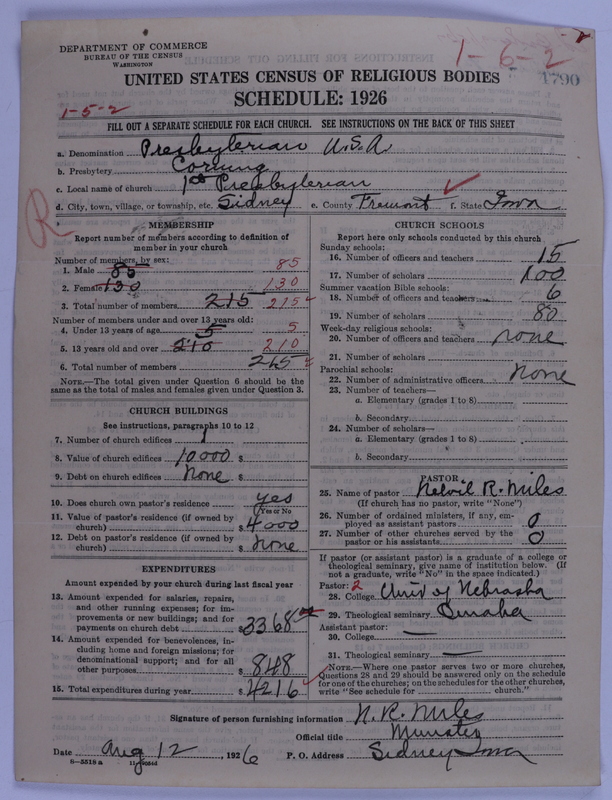 DEPARTMENT OF COMMERCE
BUREAU OF THE CENSUS
WASHINGTON
1-6-2
1790
UNITED STATES CENSUS OF RELIGIOUS BODIES
SCHEDULE: 1926
1-5-2
FILL OUT A SEPARATE SCHEDULE FOR EACH CHURCH. SEE INSTRUCTIONS ON THE BACK OF THIS SHEET
a. Denomination Presbyterian U.S.A
b. Presbytery Corning
c. Local name of church 1st Presbyterian
d. City, town, village, or township, etc. Sidney e. County Fremont f. State Iowa
R
MEMBERSHIP
Report number of members according to definition of member in your church
Number of members, by sex:
1. Male 85 85
2. Female 130 130
3. Total number of members 215 215
Number of members under and over 13 years old:
4. Under 13 years of age 5 5
5. 13 years old and over 210 210
6. Total number of members 215
NOTE.—The total given under Question 6 should be the same as the total of males and females given under Question 3.
CHURCH BUILDINGS
See instructions, paragraphs 10 to 12
7. Number of church edifices 1
8. Value of church edifices 10000 $
9. Debt on church edifices None $
10. Does church own pastor's residence yes
(Yes or No)
11. Value of pastor's residence (if owned by church) $ 4000
12. Debt on pastor's residence (if owned by church) $ none
EXPENDITURES
Amount expended by your church during last fiscal year
13. Amount expended for salaries, repairs, and other running expenses; for improvements or new buildings; and for payments on church debt $ 3368
14. Amount expended for benevolences, including home and foreign missions; for denominational support; and for all other purposes $ 848
15. Total expenditures during year $ 4216
CHURCH SCHOOLS
Report here only schools conducted by this church
Sunday schools:
16. Number of officers and teachers 15
17. Number of scholars 100
Summer vacation Bible schools:
18. Number of officers and teachers 6
19. Number of scholars 80
Week-day religious schools:
20. Number of officers and teachers none
21. Number of scholars
Parochial schools:
22. Number of administrative officers None
23. Number of teachers—
a. Elementary (grades 1 to 8)
b. Secondary
24. Number of scholars—
a. Elementary (grades 1 to 8)
b. Secondary
PASTOR
25. Name of pastor R. Miles
(If church has no pastor, write "None")
26. Number of ordained ministers, if any, employed as assistant pastors 0
27. Number of other churches served by the pastor or his assistants 0
If pastor (or assistant pastor) is a graduate of a college or theological seminary, give name of institution below. (If not a graduate, write "No" in the space indicated.)
Pastor: 2
28. College Univ of Nebraska
29. Theological seminary Omaha
Assistant pastor:
30. College —
31. Theological seminary —
NOTE.—Where one pastor serves two or more churches, Questions 28 and 29 should be answered only on the schedule for one of the churches; on the schedules for the other churches, write "See schedule for church."
Signature of person furnishing information N. R. Miles
Official title Minister
Date Aug 12, 1926 P. O. Address Sidney Iowa
8—5518 a